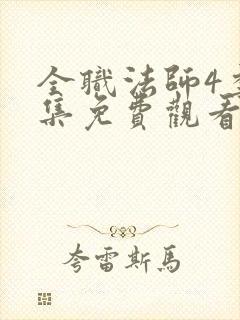 全職法師4
集免費觀看
夸雷斯馬